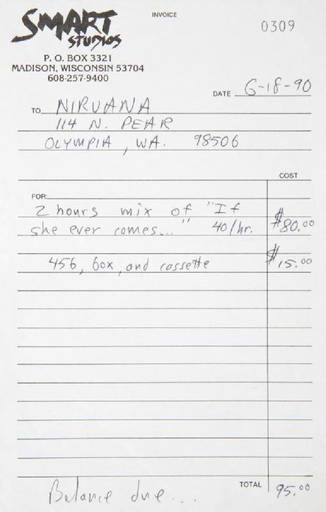 SMART
STUDIOS
INVOICE
0309
P. O. BOX 3321
MADISON, WISCONSIN 53704
608-257-9400
DATE 6-18-90
TO NIRVANA
114 N. PEAR
OLYMPIA, WA. 98506
COST
FOR
2 hours mix of "If
she ever comes..." 40/hr. $80.00
456, box, and cassette $15.00
Balance due... TOTAL 95.00